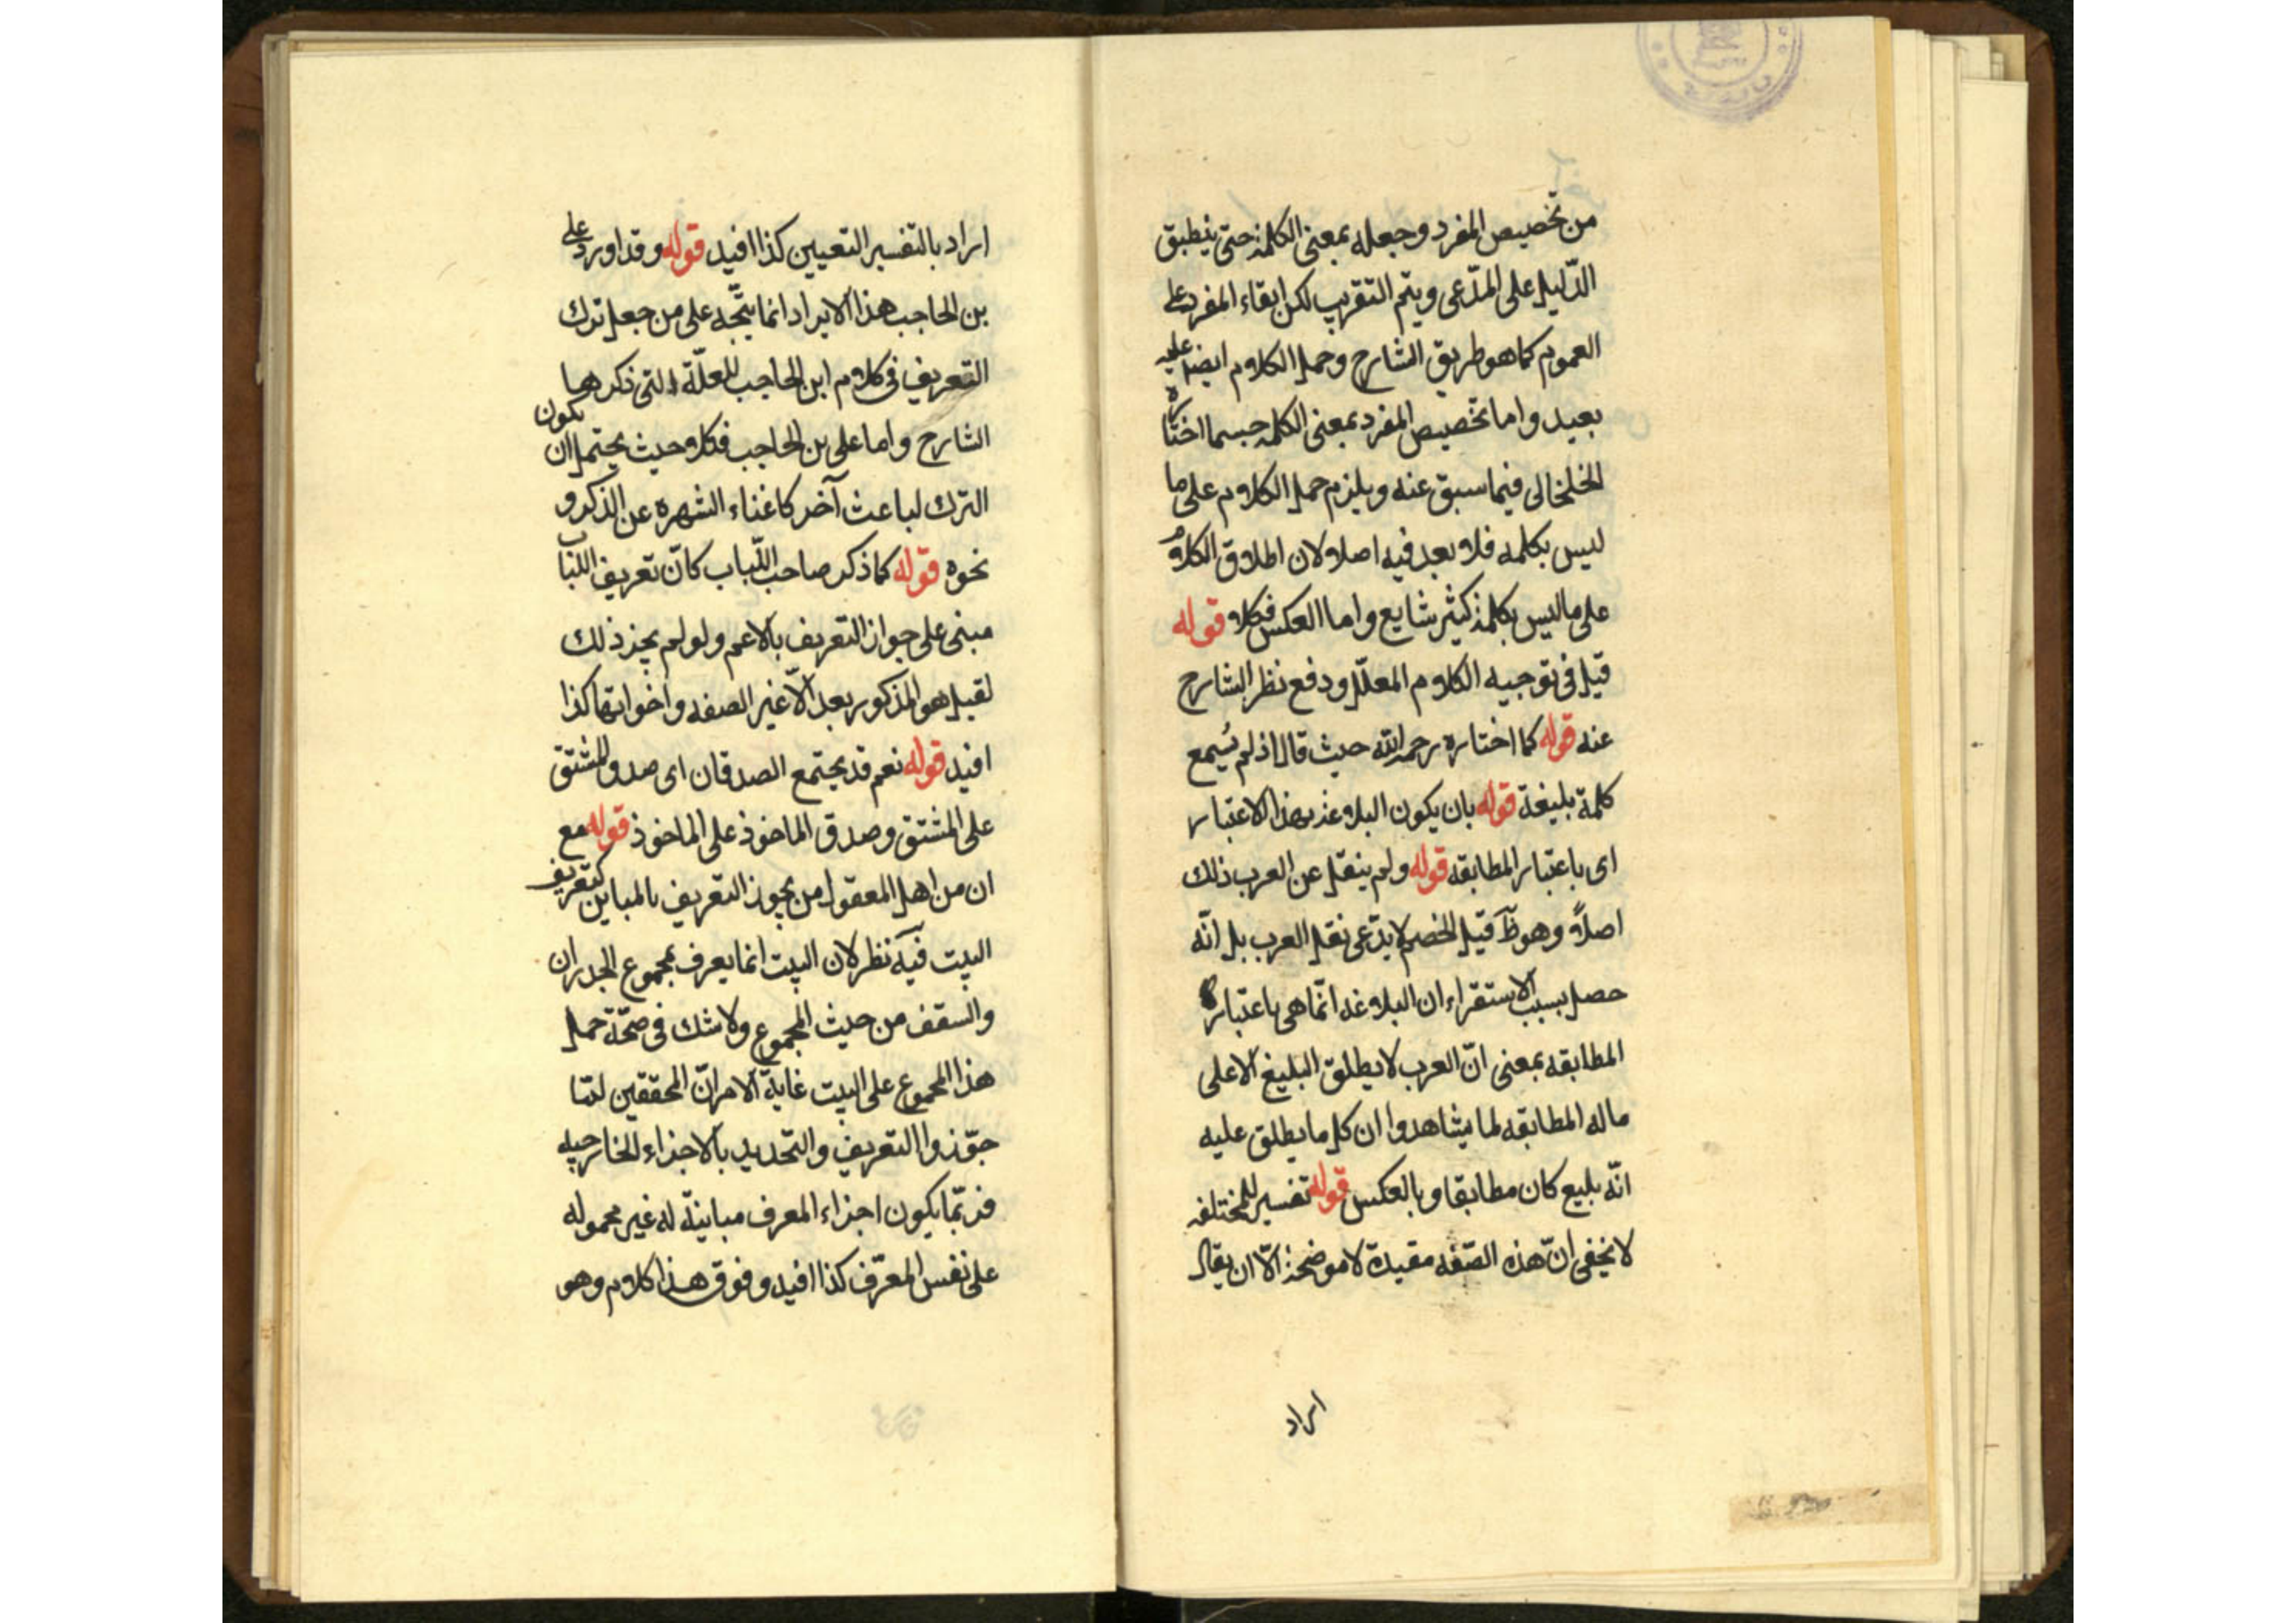 من تخصيص المفرد وجعله بمعنى الكلمة حتى ينطبق
الدّليل على المدّعى ويتم التقريب لكن ابقاء المفرد على
العموم كما هو طريق الشارح وحمل الكلام ايضا عليه
بعيد واما تخصيص المفرد بمعنى الكلمة حسبما اختاره
الخلخالى فيما سبق عنه ويلزم حمل الكلام على ما
ليس بكلمه فلا بعد فيه اصلا لان اطلاق الكلام
على ما ليس بكلمة كثير شايع واما العكس فكلا قوله
قيل فى توجيه الكلام المعلّل ودفع نظر الشارح
عنه قوله كما اختاره رحمه الله حيث قال اذ لم يُسمع
كلمة بليغة قوله بان يكون البلاغة بهذا الاعتبار
اى باعتبار المطابقه قوله ولم ينقل عن العرب ذلك
اصلاً وهو ظ قيل الخصم لا يدّعى نقل العرب بل انّه
حصل بسبب الاستقراء ان البلاغه انّما هى باعتبار
المطابقه بمعنى انّ العرب لا يطلق البليغ الا على
ماله المطابقه لما يشاهدوا ان كل ما يطلق عليه
انّه بليغ كان مطابقا وبالعكس قوله تفسير للمختلفه
لا يخفى انّ هذه الصّفه مقيدة لا موضحة الّا ان يقال
اراد
اراد بالتفسير التعيين كذا افيد قوله وقد اورد على
بن الحاجب هذا الايراد انما يتّجه على من جعل ترك
التعريف فى كلام ابن الحاجب للعلّة التى ذكرها
الشارح واما على بن الحاجب فكلا حيث يحتمل ان يكون
الترك لباعث آخر كاغناء الشهره عن الذكر و
نحوه قوله كما ذكر صاحب اللّباب كانّ تعريف اللباب
مبنى على جواز التعريف بالاعم ولو لم يجز ذلك
لقيل هو المذكور بعد الّا غير الصفه واخواتها كذا
افيد قوله نعم قد يجتمع الصدقان اى صدق المشتق
على المشتق وصدق الماخوذ على الماخوذ قوله مع
ان من اهل المعقول من يجوز التعريف بالمباين كتعريف
البيت فيه نظر لان البيت انما يعرف بمجموع الجدران
والسقف من حيث المجموع ولا شك فى صحّة حمل
هذا المجموع على البيت غاية الامر انّ المحققين لمّا
جوّزوا التعريف والتحديد بالاجزاء الخارجيه
فربّما يكون اجزاء المعرف مباينة له غير محموله
على نفس المعرّف كذا افيد وفوق هذا كلام وهو